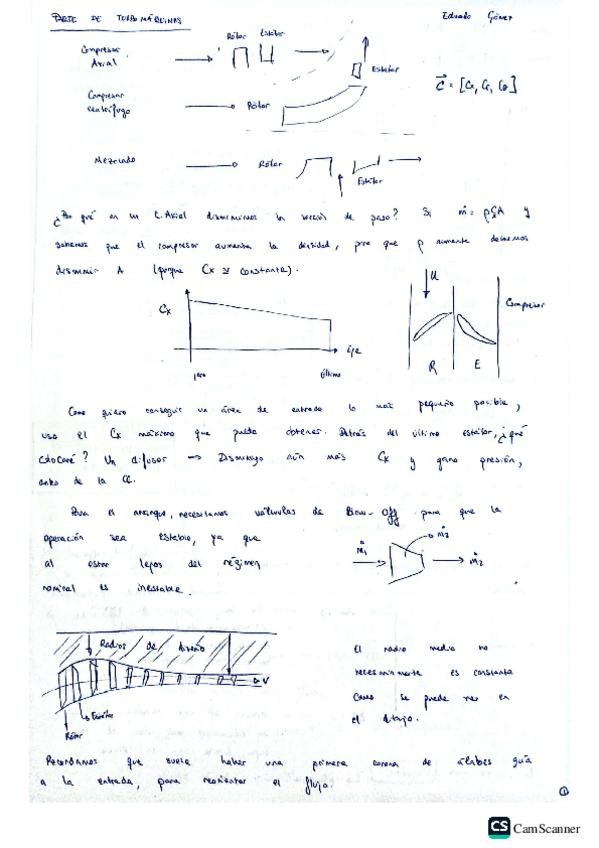 PARTE DE TURBOMÁQUINAS
Eduardo Gómez
Compresor Axial
Rótor Estátor
Estátor
C = [Cx, Cr, Cθ]
Compresor centrífugo
Rótor
Mezclado
Rótor
Estátor
¿Por qué en un C. Axial disminuimos la sección de paso? Si ṁ = ρCxA y
sabemos que el compresor aumenta la densidad, para que ρ aumente debemos
disminuir A (porque Cx ≅ constante).
Cx
Eje
último
u
R E
Compresor
Como quiero conseguir un área de entrada lo más pequeño posible,
uso el Cx máximo que puedo obtener. Detrás del último estátor, ¿qué
colocaré? Un difusor → Disminuyo aún más Cx y gano presión,
antes de la CC.
Para el arranque, necesitamos válvulas de Blow-Off para que la
operación sea estable, ya que
al estar lejos del régimen
nominal es inestable.
ṁ1
ṁ3
ṁ2
Radios de diseño
Estátor
Rótor
El radio medio no
necesariamente es constante
como se puede ver en
el dibujo.
Recordamos que suele haber una primera corona de álabes guía
a la entrada, para reorientar el flujo.
1
CS CamScanner